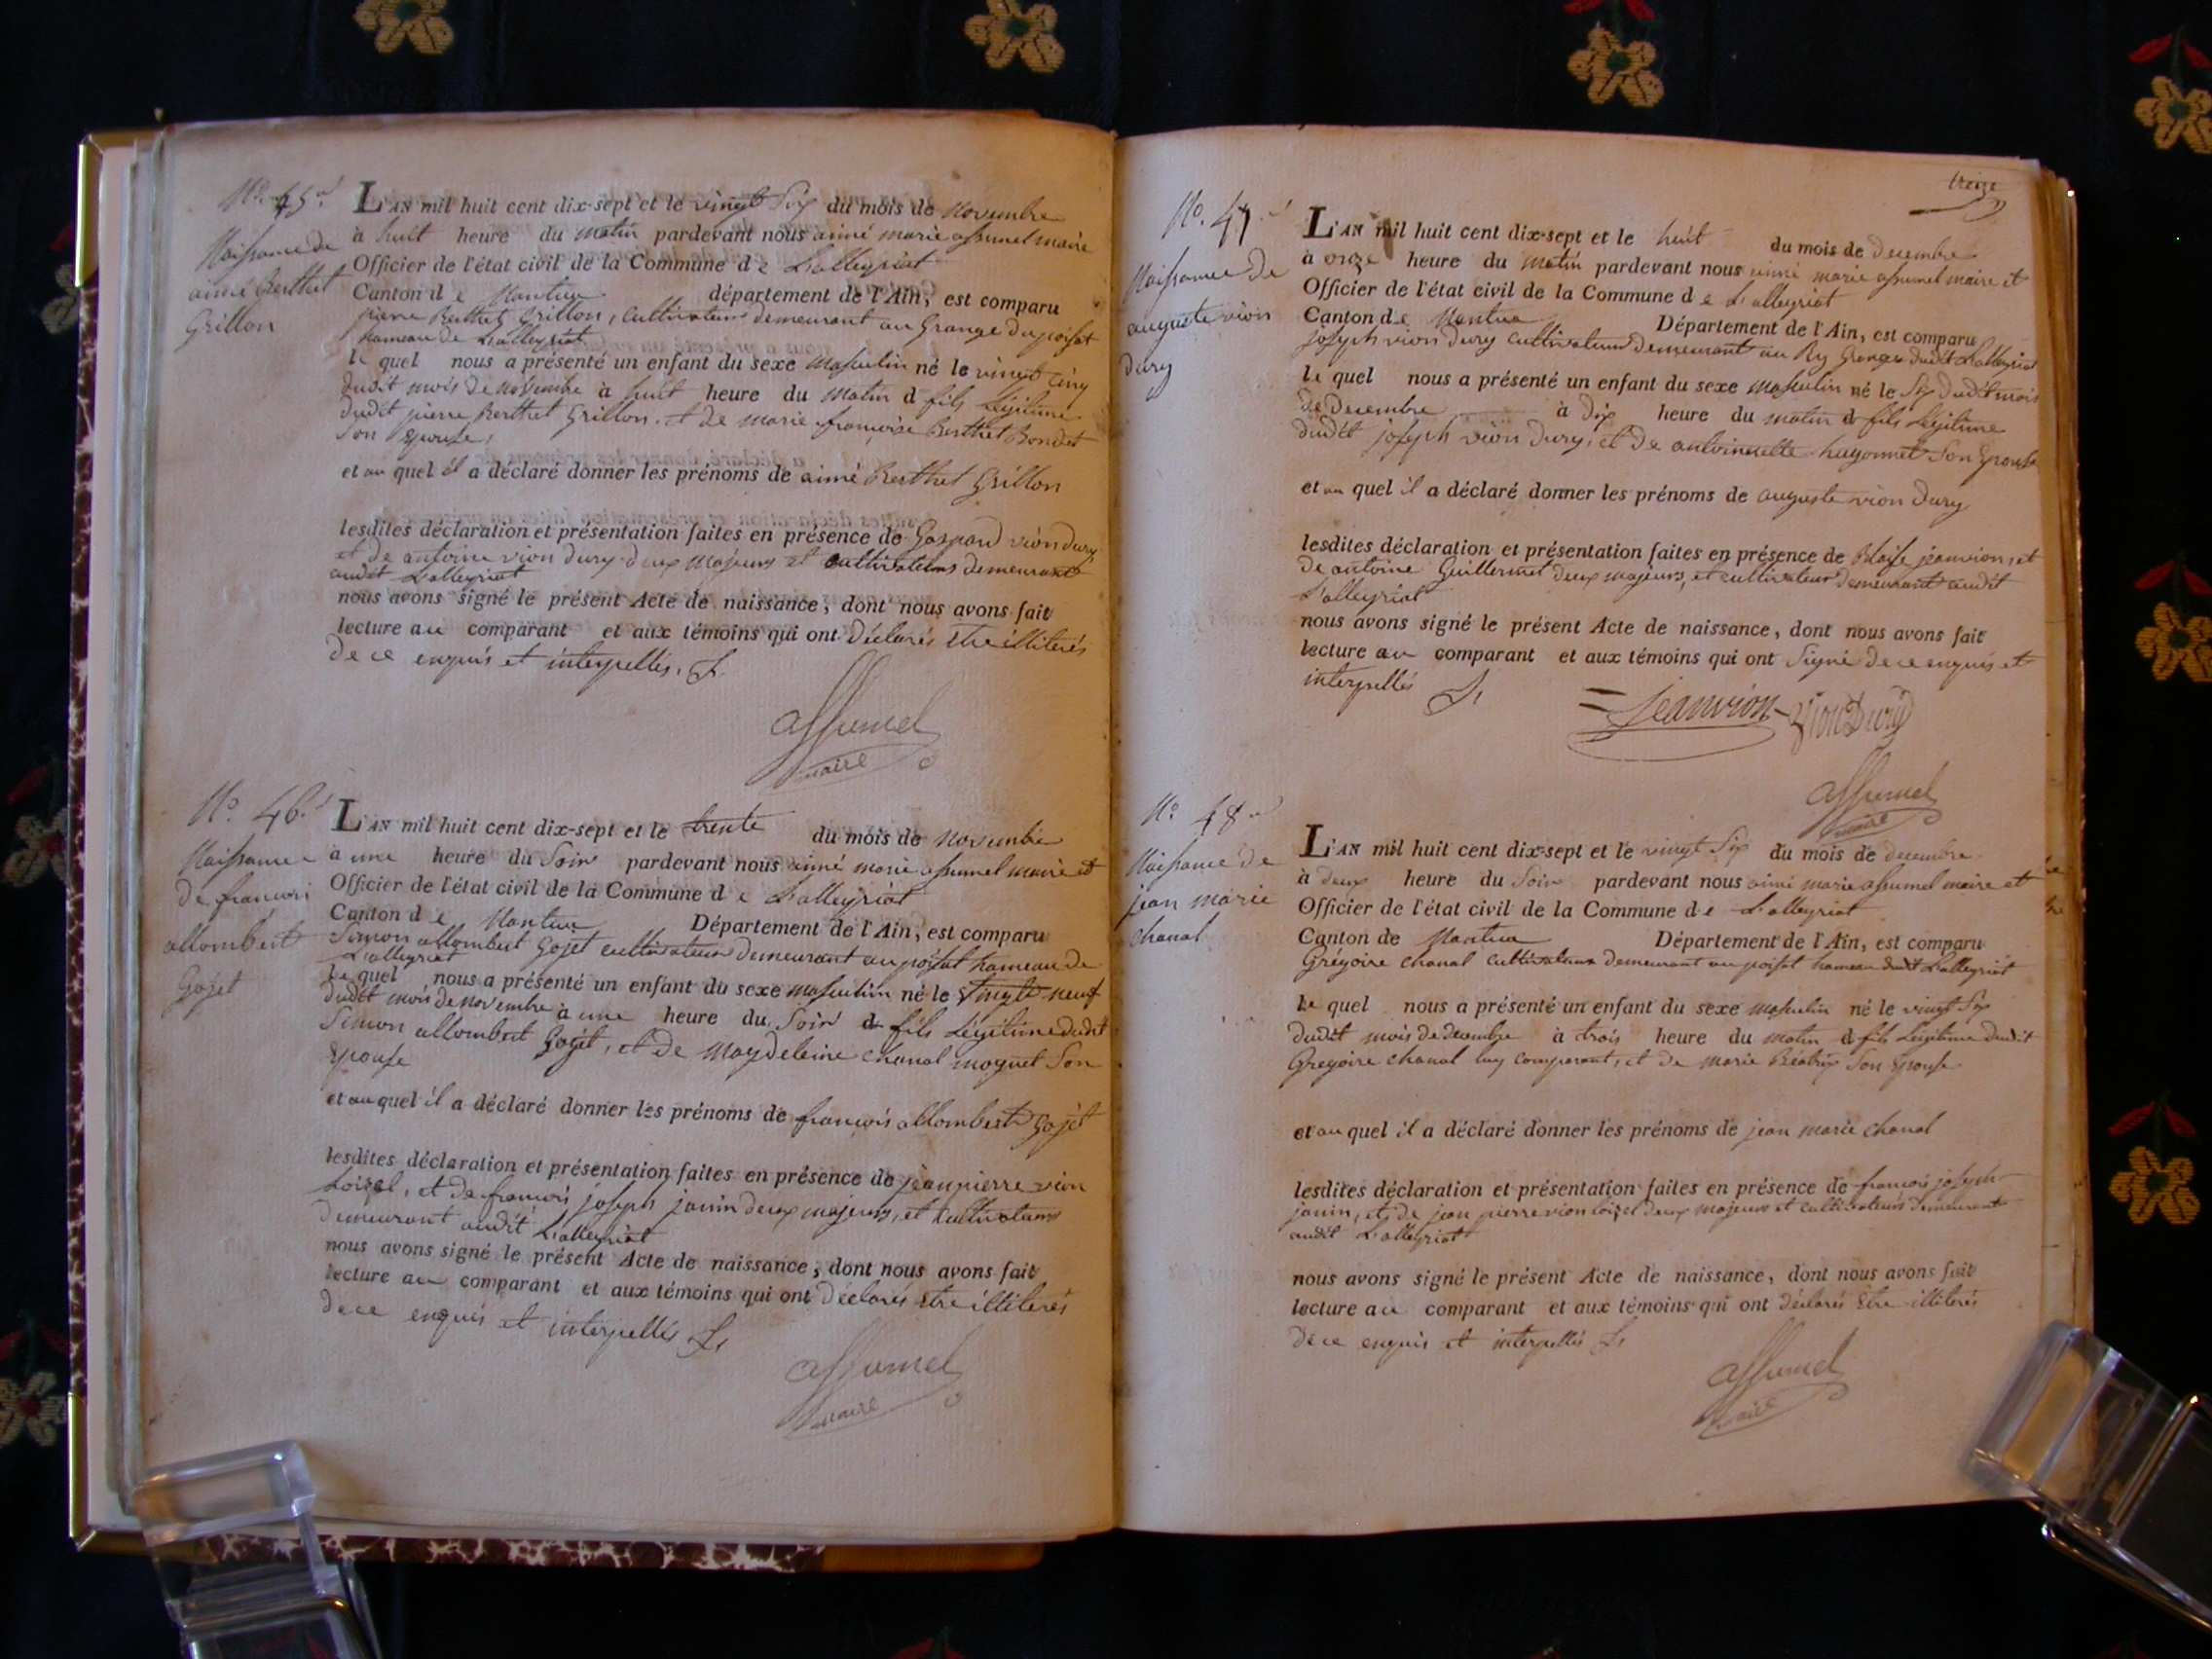 No. 45.
Naissance de
aimé Berthet
Grillon
L'AN mil huit cent dix-sept et le vingt six du mois de Novembre
à huit heure du matin pardevant nous aimé marie assumel maire
Officier de l'état civil de la Commune de L'alleyriat
Canton de Nantua département de l'Ain, est comparu
pierre Berthet Grillon, cultivateur demeurant au Grange du poisat
hameau de L'alleyriat
le quel nous a présenté un enfant du sexe masculin né le vingt cinq
dudit mois de novembre à huit heure du matin d fils Légitime
dudit pierre Berthet Grillon, et de marie françoise Berthet Bondet
son Epouse,
et au quel il a déclaré donner les prénoms de aimé Berthet Grillon
lesdites déclaration et présentation faites en présence de Gaspard vion Dury
et de antoine vion Dury deux majeurs et cultivateurs demeurant
audit L'alleyriat
nous avons signé le présent Acte de naissance, dont nous avons fait
lecture au comparant et aux témoins qui ont Déclarés être illiterés
de ce enquis et interpellés.
assumel
maire
No. 46.
Naissance
de françois
allombert
Gojet
L'AN mil huit cent dix-sept et le trente du mois de novembre
à une heure du Soir pardevant nous aimé marie assumel maire et
Officier de l'état civil de la Commune de L'alleyriat
Canton de Nantua Département de l'Ain, est comparu
Simon allombert Gojet cultivateur demeurant au poisat hameau de
L'alleyriat
le quel nous a présenté un enfant du sexe masculin né le vingt-neuf
dudit mois de novembre à une heure du Soir d fils Légitime dudit
Simon allombert Gojet, et de Magdeleine chanal moguet Son
Epouse
et au quel il a déclaré donner les prénoms de françois allombert Gojet
lesdites déclaration et présentation faites en présence de jean pierre vion
Loisel, et de françois joseph janin deux majeurs, et cultivateurs
demeurant audit L'alleyriat
nous avons signé le présent Acte de naissance, dont nous avons fait
lecture au comparant et aux témoins qui ont Declarés être illiterés
de ce enquis et interpellés
assumel
maire
treize
No. 47.
Naissance de
auguste vion
Dury
L'AN mil huit cent dix-sept et le huit du mois de Decembre
à onze heure du matin pardevant nous aimé marie assumel maire et
Officier de l'état civil de la Commune de L'alleyriat
Canton de Nantua Département de l'Ain, est comparu
joseph vion Dury cultivateur demeurant au Ry Grange dudit L'alleyriat
le quel nous a présenté un enfant du sexe masculin né le Six dudit mois
de Decembre à dix heure du matin d fils Légitime
dudit joseph vion Dury, et de antoinette hugonnet Son Epouse
et au quel il a déclaré donner les prénoms de auguste vion Dury
lesdites déclaration et présentation faites en présence de Blaise jeanvion, et
de antoine Guillermet deux majeurs, et cultivateur demeurant audit
L'alleyriat
nous avons signé le présent Acte de naissance, dont nous avons fait
lecture au comparant et aux témoins qui ont Signé de ce enquis et
interpellés
jeanvion Vion Dury
assumel
maire
No. 48
Naissance de
jean marie
chanal
L'AN mil huit cent dix-sept et le vingt Six du mois de decembre
à deux heure du Soir pardevant nous aimé marie assumel maire et
Officier de l'état civil de la Commune de L'alleyriat
Canton de Nantua Département de l'Ain, est comparu
Grégoire chanal cultivateur demeurant au poisat hameau dudit L'alleyriat
le quel nous a présenté un enfant du sexe masculin né le vingt Six
dudit mois de Decembre à trois heure du matin d fils Légitime dudit
Gregoire chanal comparant, et de marie Béatrix Son Epouse
et au quel il a déclaré donner les prénoms de jean marie chanal
lesdites déclaration et présentation faites en présence de françois joseph
janin, et de jean pierre vion loisel deux majeurs et cultivateurs demeurant
audit L'alleyriat
nous avons signé le présent Acte de naissance, dont nous avons fait
lecture au comparant et aux témoins qui ont déclarés Etre illiterés
de ce enquis et interpellés
assumel
maire